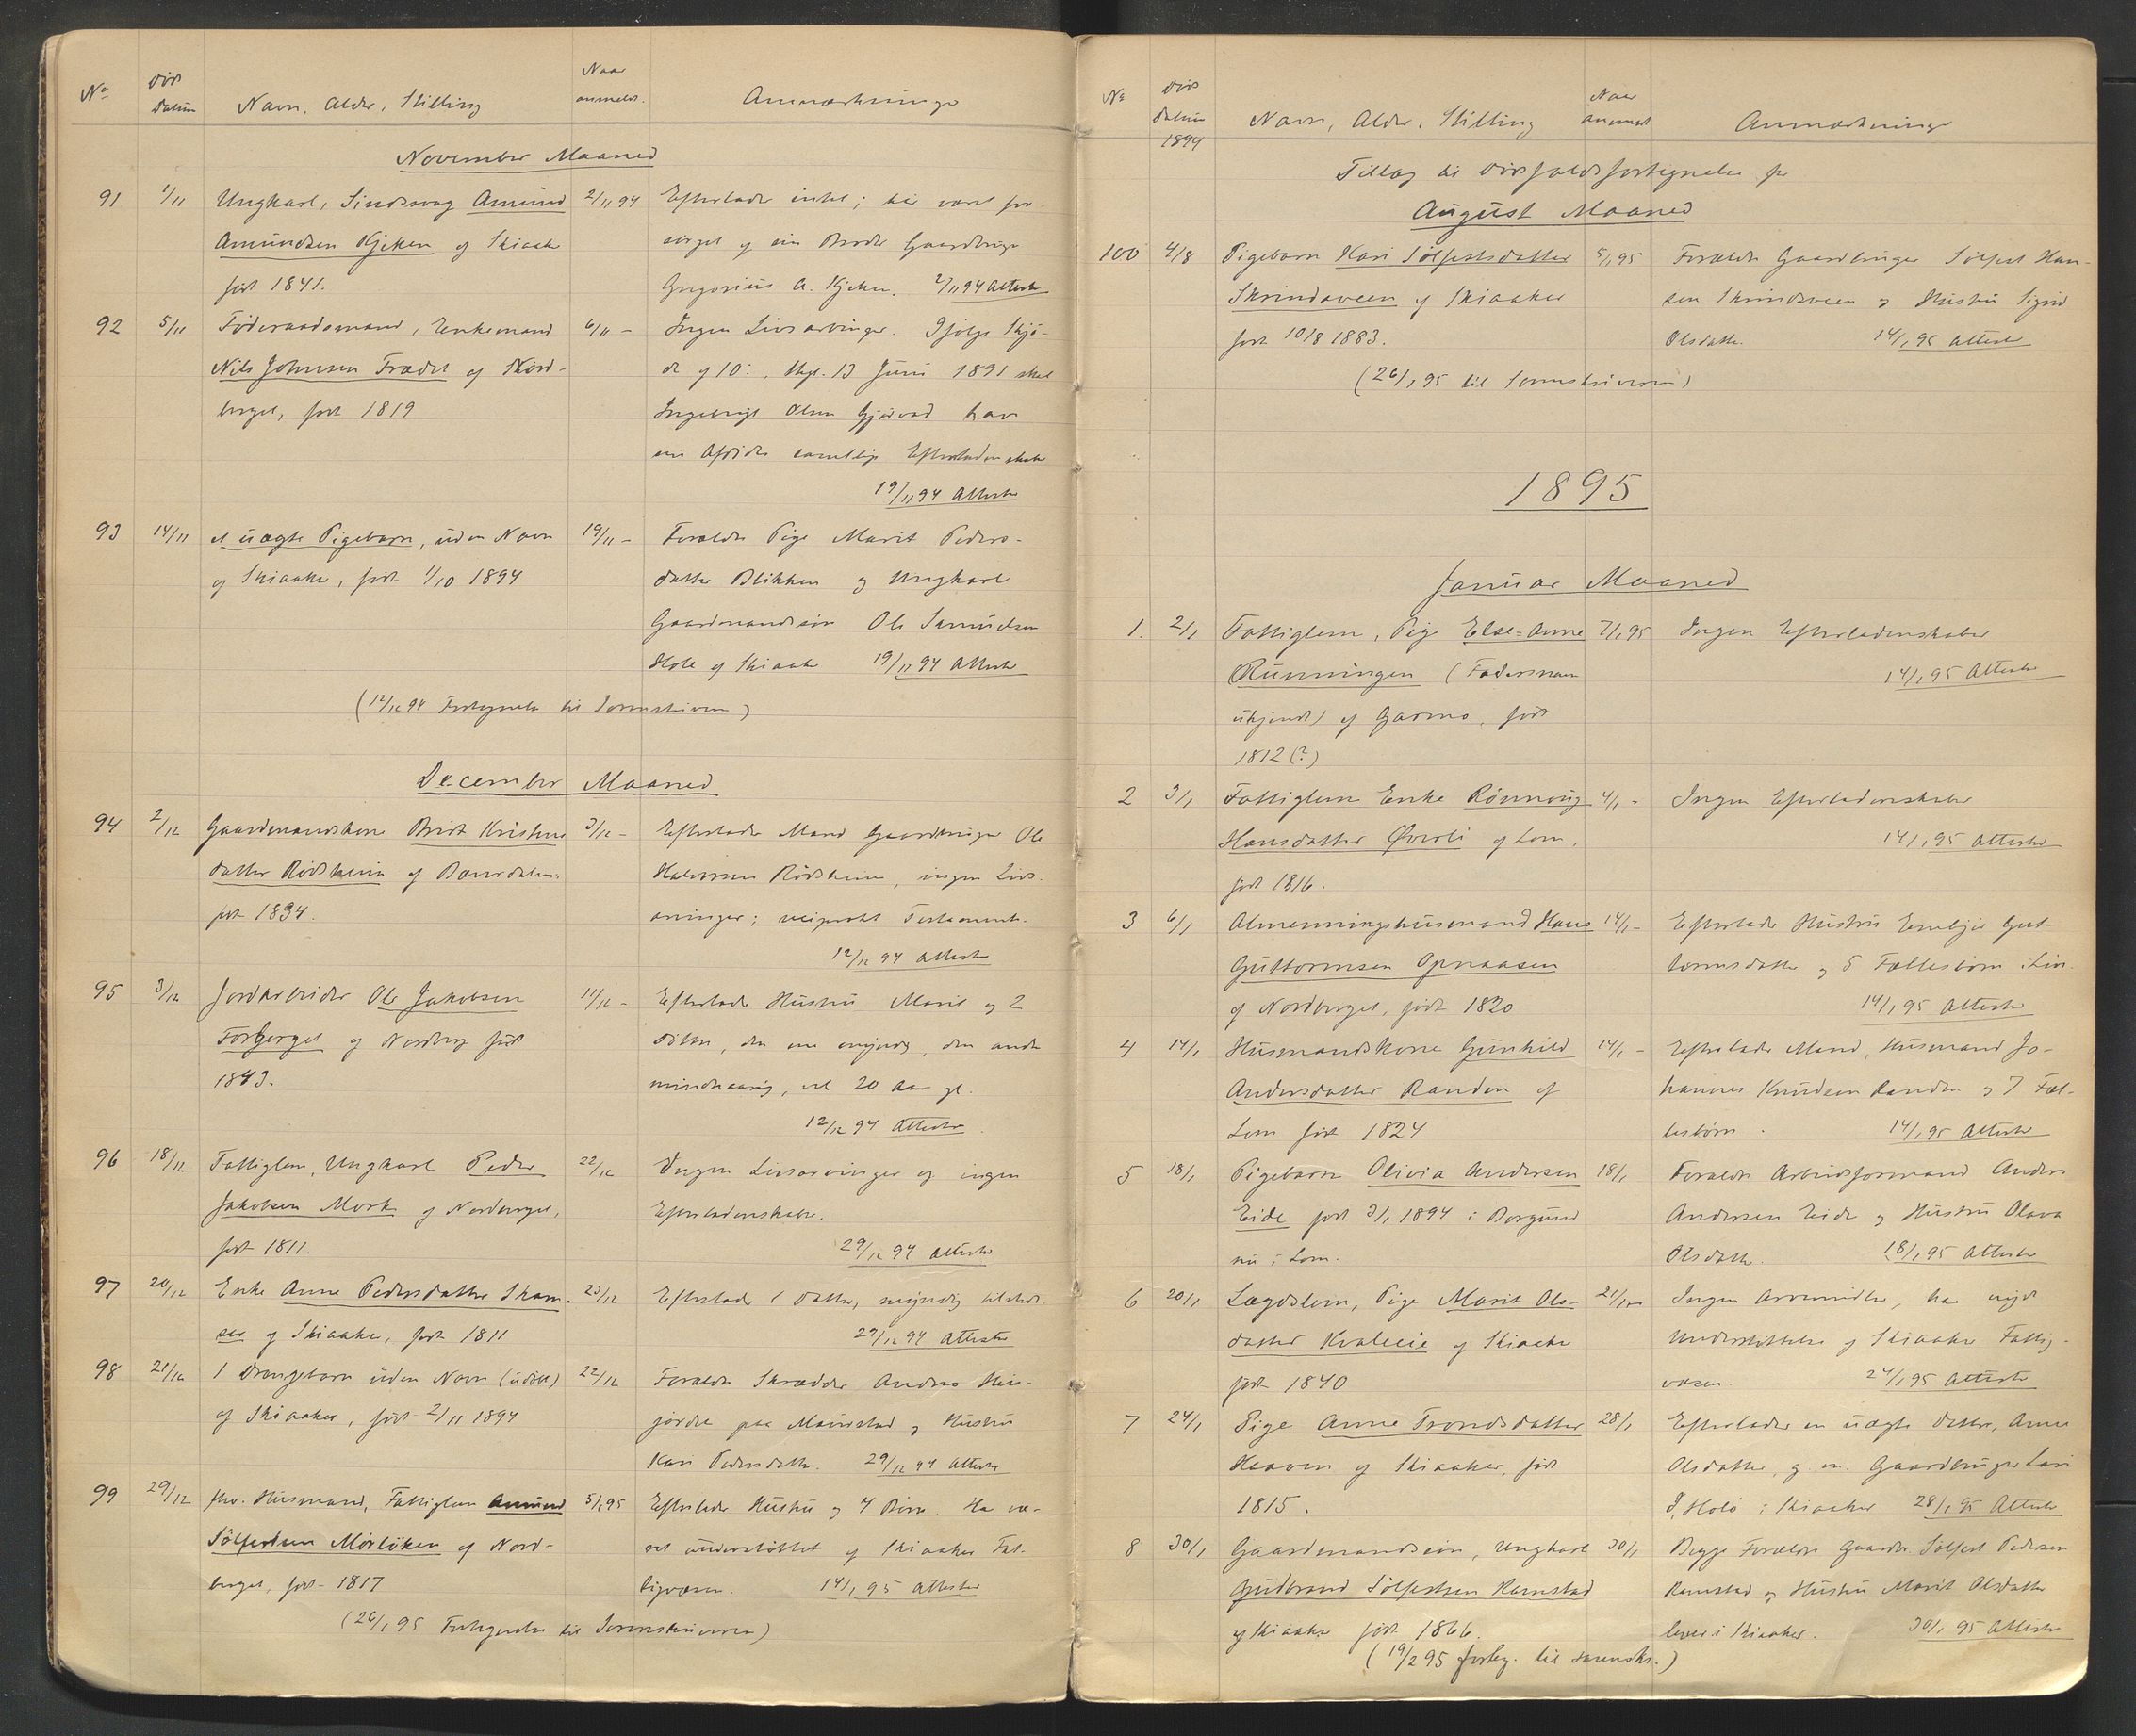 No
Død
Datum
Navn, Alder, Stilling
Naar
anmeldt.
Anmærkninger
November Maaned
91 1/11 Ungkarl, Sindssvag Amund 2/11 94 Efterlader intet; har været for-
Amundsen Kjeken af Skiaaker sørget af sin Broder Gaardbruger
født 1841. Gregorius A. Kjeken. 2/11 94 Attester
92 5/11 Føderaadsmand, Enkemand 6/11 – Ingen Livsarvinger. Ifølge Skjø-
Nils Johnsen Frædet af Nord- de af 10 thgl. 13 Juni 1891 skal
berget, født 1819 Ingebrigt Olsen Gjørvad have
sin Afdødes samtlige Efterladenskaber
19/11 94 Attester
93 14/11 et uægte Pigebarn, uden Navn 19/11 – Forældre Pige Marit Peders-
af Skiaaker, født 1/10 1894 datter Blikken og Ungkarl
Gaardmandssøn Ole Samuelsen
Hole af Skiaaker 19/11 94 Attester
(12/12 94 Fortegnelse til Sorenskriveren)
December Maaned
94 2/12 Gaardmandskone Brit Kristens- 3/12 – Efterlader Mand Gaardbruger Ole
datter Rødsheim af Bæverdalen Halvorsen Rødsheim, ingen Livs-
født 1834. arvinger; reciprokt Testamente.
12/12 94 Attester
95 3/12 Jordarbeider Ole Jakobsen 11/12 – Efterlader Hustru Marit og 2
Forberget af Nordberg født Døtre, den ene myndig, den anden
1843. mindreaarig, vel 20 Aar gl.
12/12 94 Attester.
96 18/12 Fattiglem, Ungkarl Peder 22/12 Ingen Livsarvinger og ingen
Jakobsen Mork af Nordberget, Efterladenskaber.
født 1811. 29/12 94 Attester
97 20/12 Enke Anne Pedersdatter Skam- 23/12 Efterlader 1 Datter, myndig tilsted.
ser af Skiaaker, født 1811 29/12 94 Attester
98 21/12 1 Drengebarn uden Navn (udøbt) 22/12 Forældre Skrædder Anders Hus-
af Skiaaker, født 2/11 1894 jordet paa Maurstad og Hustru
Kari Pedersdatter. 29/12 94 Attester
99 29/12 fhv. Husmand, Fattiglem Amund 5/1 95 Efterlader Hustru og 4 Børn. Har væ-
Sølfestsen Mørløken af Nord- ret understøttet af Skiaaker Fat-
berget, født 1817 tigvæsen. 14/1 95 Attester
(26/1 95 Fortegnelse til Sorenskriveren)
No
Død
Datum
1894
Navn, Alder, Stilling
Naar
anmeldt
Anmærkninger
Tillæg til Dødsfaldsfortegnelse for
August Maaned
100 4/8 Pigebarn Kari Sølfestsdatter 5/1 95 Forældre Gaardbruger Sølfest Han-
Skrindsveen af Skiaaker sen Skrindsveen og Hustru Sigrid
født 10/8 1883. Olsdatter. 14/1 95 Attester
(26/1 95 til Sorenskriveren)
1895
Januar Maaned
1. 2/1 Fattiglem, Pige Else=Anne 7/1 95 Ingen Efterladenskaber
Runningen (Fadersnavn 14/1 95 Attester
ukjendt) af Garmo, født
1812 (?)
2 3/1 Fattiglem Enke Rønnoug 4/1 – Ingen Efterladenskaber
Hansdatter Øvrli af Lom, 14/1 95 Attester
født 1816.
3 6/1 Almenningshusmand Hans 14/1 – Efterlader Hustru Embjør Gut-
Guttormsen Opnaasen tormsdatter og 5 Fællesbørn i Liv
af Nordberget, født 1820 14/1 95 Attester
4 14/1 Husmandskone Gunhild 14/1 – Efterlader Mand, Husmand Jo-
Andersdatter Randen af hannes Knudsen Randen og 7 Fæl-
Lom født 1824 lesbørn. 14/1 95 Attester
5 18/1 Pigebarn Olivia Andersen 18/1 Forældre Arbeidsformand Anders
Eide født 3/1 1894 i Borgund Andersen Eide og Hustru Olava
nu i Lom. Olsdatter. 18/1 95 Attester
6 20/1 Lægdslem, Pige Marit Ols- 21/1 – Ingen Arvemidler, har nydt
datter Kvaleeie af Skiaaker Understøttelse af Skiaaker Fattig-
født 1840 væsen. 24/1 95 Attester
7 24/1 Pige Anne Trondsdatter 28/1 Efterlader en uægte Datter, Anne
Haaven af Skiaaker, født Olsdatter, g. m. Gaardbruger Lars
1815. J. Holø i Skiaaker 28/1 95 Attester
8 30/1 Gaardmandssøn, Ungkarl 30/1 Begge Forældre Gaardbr. Sølfest Pedersen
Gudbrand Sølfestsen Ramstad Ramstad og Hustru Marit Olsdatter
af Skiaaker født 1866. lever i Skiaaker. 30/1 95 Attester
(19/2 95 forteg. til Sorenskr.)